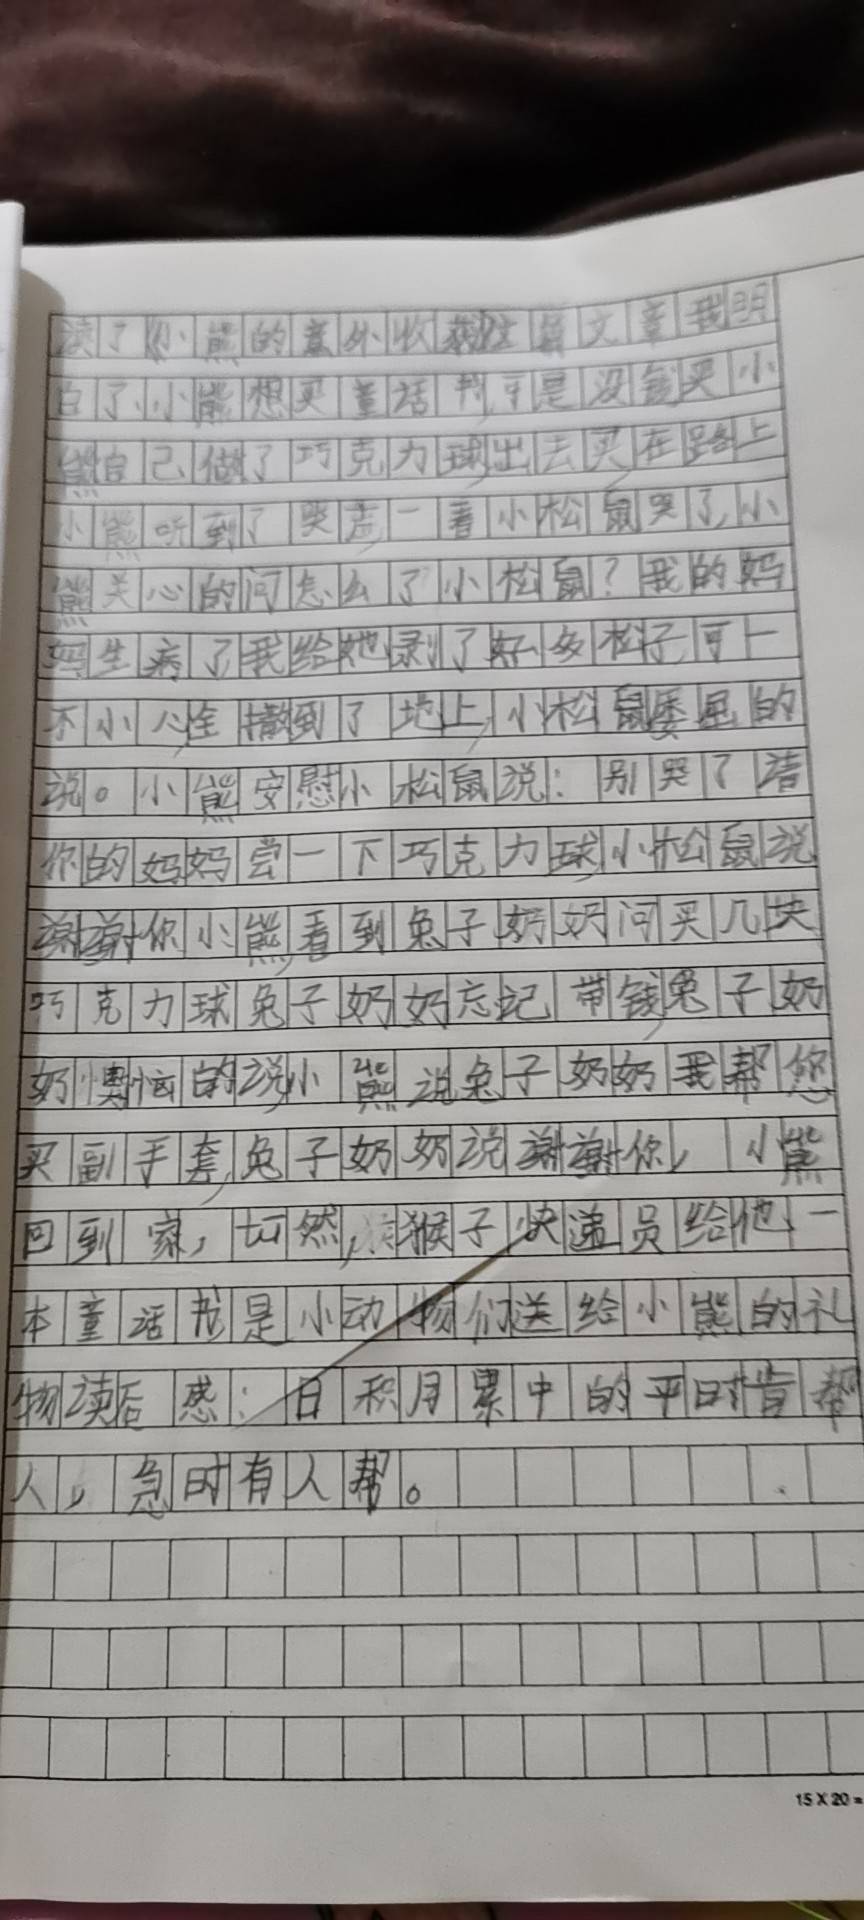 读了《小熊的意外收获》这篇文章我明
白了,小熊想买童话书,可是没钱买小
熊自己做了巧克力球,出去买,在路上
小熊听到了哭声,一看小松鼠哭了,小
熊关心的问怎么了小松鼠？我的妈
妈生病了,我给她剥了好多松子,可一
不小心全撒到了地上,小松鼠委屈的
说。小熊安慰小松鼠说：别哭了请
你的妈妈尝一下巧克力球,小松鼠说
谢谢你小熊,看到兔子奶奶问买几块
巧克力球兔子奶奶忘记带钱,兔子奶
奶懊恼的说,小熊说兔子奶奶我帮您
买副手套,兔子奶奶说谢谢你,小熊
回到家,忽然,猴子快递员给他一
本童话书是小动物们送给小熊的礼
物读后感：日积月累中的平时肯帮
人,急时有人帮。
15X20=